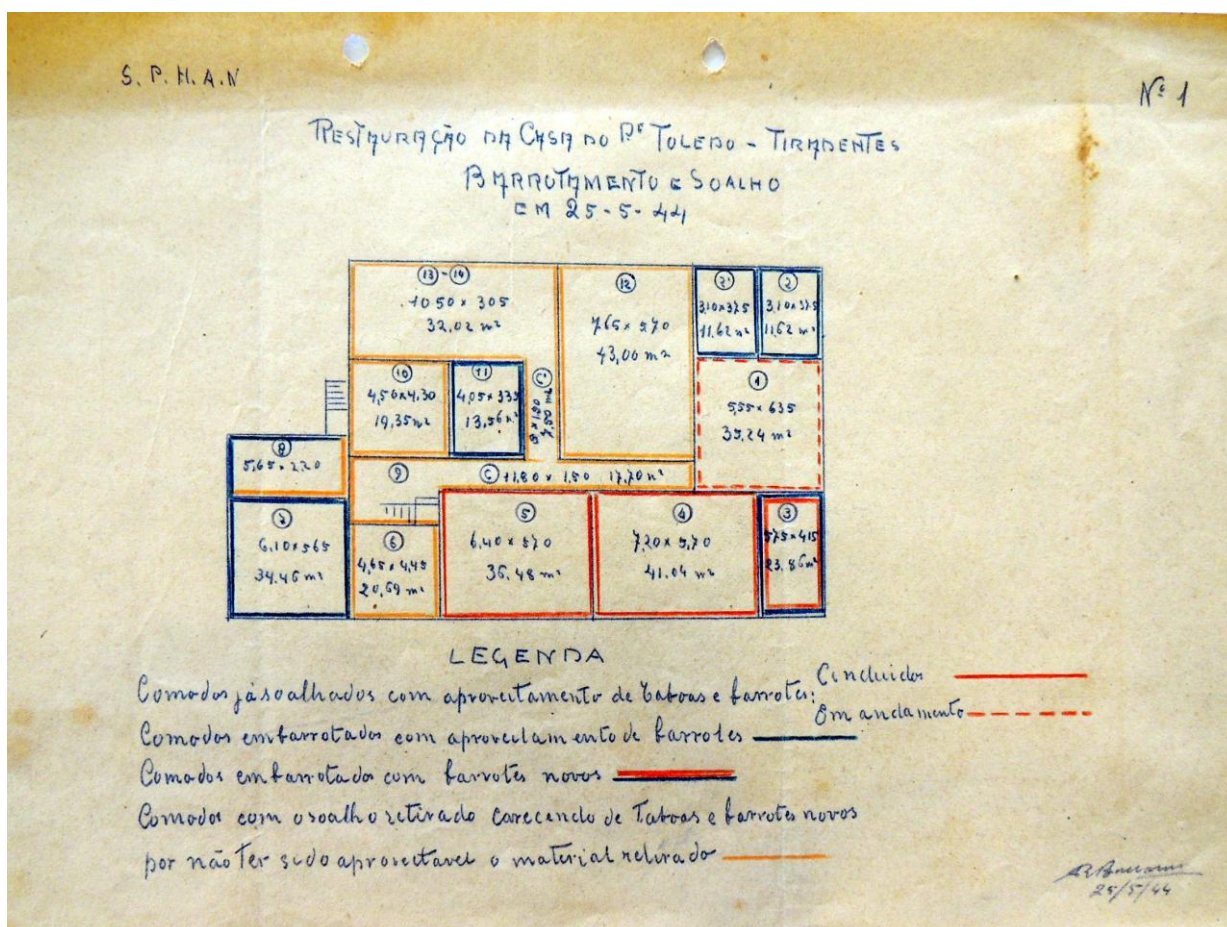 S. P. H. A. N
Nº 1
RESTAURAÇÃO DA CASA DO Pe TOLEDO - TIRADENTES
BARROTAMENTO E SOALHO
EM 25-5-44
13-14
10 50 x 305
32,02 m²
12
7,65 x 570
43,00 m²
2'
3,10x3,75
11,62 m²
2
3,10x3,75
11,62 m²
10
4,50x4,30
19,35 m²
11
4,05x335
13,56 m²
C'
1
5,55 x 635
35,24 m²
8
5,65 x 220
9
C 11,80 x 1,50 17,70 m²
7
6,10x565
34,46 m²
6
4,65 x 4,45
20,69 m²
5
6,40 x 570
36,48 m²
4
7,20 x 5,70
41,04 m²
3
575x415
23,86 m²
LEGENDA
Comodos já soalhados com aproveitamento de taboas e barrotes: Concluidos
Em andamento
Comodos embarrotados com aproveitamento de barrotes
Comodos embarrotados com barrotes novos
Comodos com o soalho retirado carecendo de Taboas e barrotes novos
por não Ter sido aproveitavel o material retirado
25/5/44